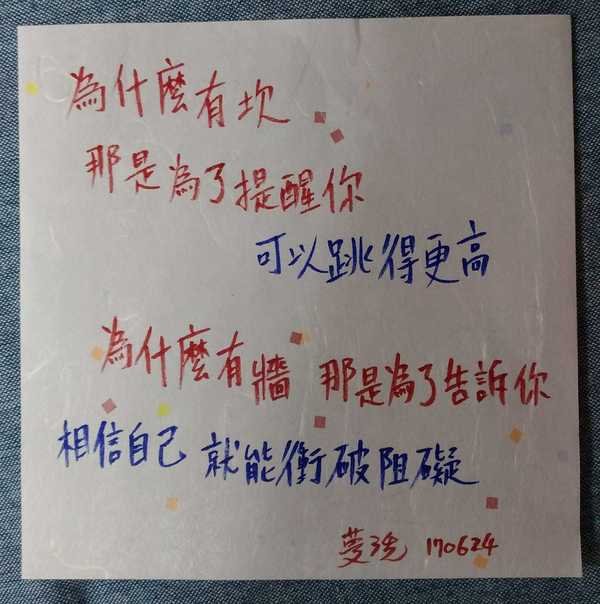 為什麼有坎
那是為了提醒你
可以跳得更高
為什麼有牆 那是為了告訴你
相信自己 就能衝破阻礙
170624